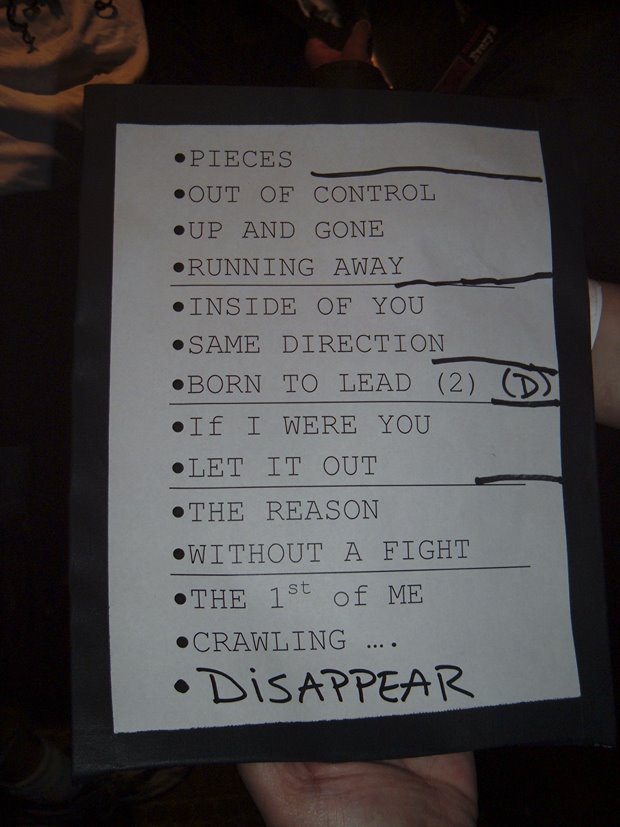 •PIECES
•OUT OF CONTROL
•UP AND GONE
•RUNNING AWAY
•INSIDE OF YOU
•SAME DIRECTION
•BORN TO LEAD (2) (D)
•If I WERE YOU
•LET IT OUT
•THE REASON
•WITHOUT A FIGHT
•THE 1st of ME
•CRAWLING ….
•DiSAPPEAR